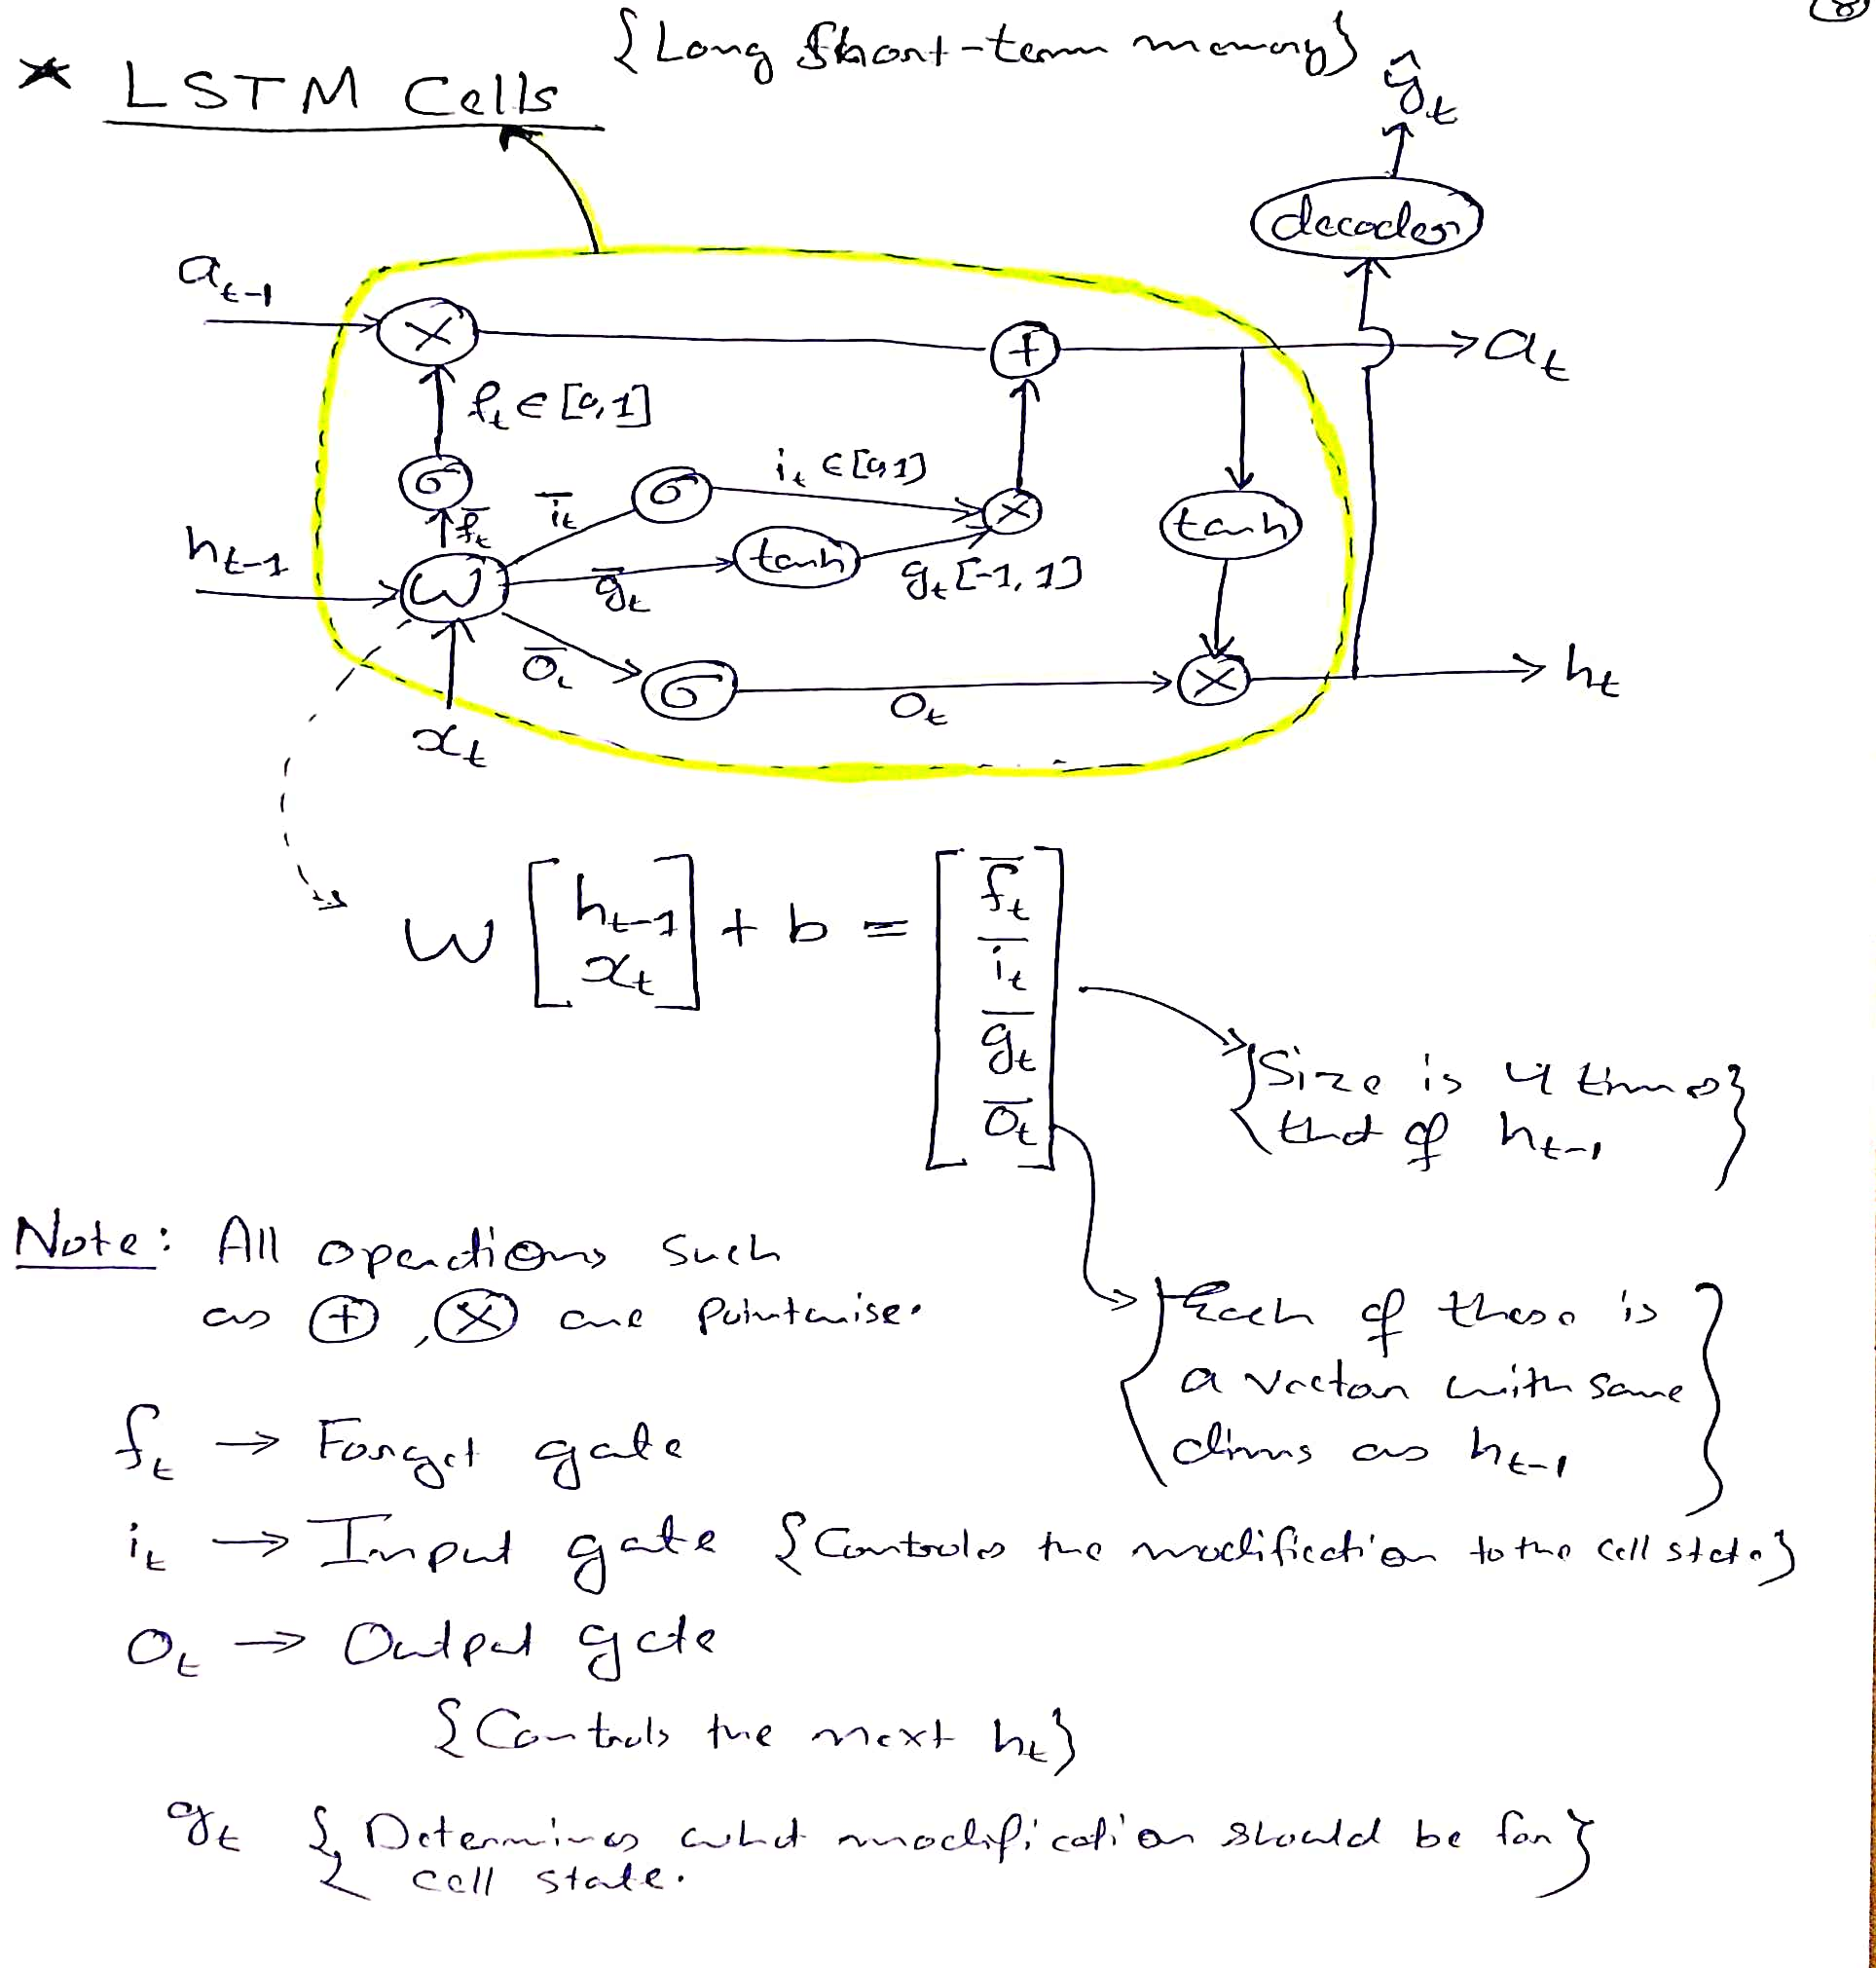 {Long Short-term memory}
* LSTM Cells
ŷ_t
decoder
a_{t-1}
×
+
a_t
f_t ∈ [0,1]
σ
σ
i_t ∈ [0,1]
×
tanh
f̄_t
ī_t
h_{t-1}
W
ḡ_t
tanh
g_t [-1,1]
ō_t
σ
o_t
×
h_t
x_t
W [h_{t-1} x_t] + b = [f̄_t ī_t ḡ_t ō_t]
{Size is 4 times}
{that of h_{t-1}}
Note: All operations such
as ⊕, ⊗ are pointwise.
{Each of these is
a vector with same
dims as h_{t-1}}
f_t → Forget gate
i_t → Input gate {Controls the modification to the cell state}
o_t → Output gate
{Controls the next h_t}
g_t {Determines what modification should be for}
cell state.